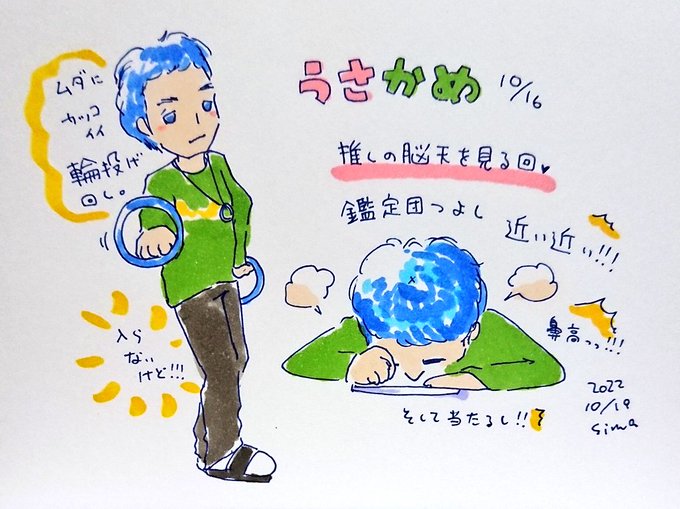 ムダに
カッコ
イイ
輪投げ
回し。
入ら
ない
けど!!!
うさかめ 10/16
推しの脳天を見る回♥
鑑定団つよし
近い近い!!!
鼻高っっ!!!
そして当たるし!!
2022
10/19
Sima